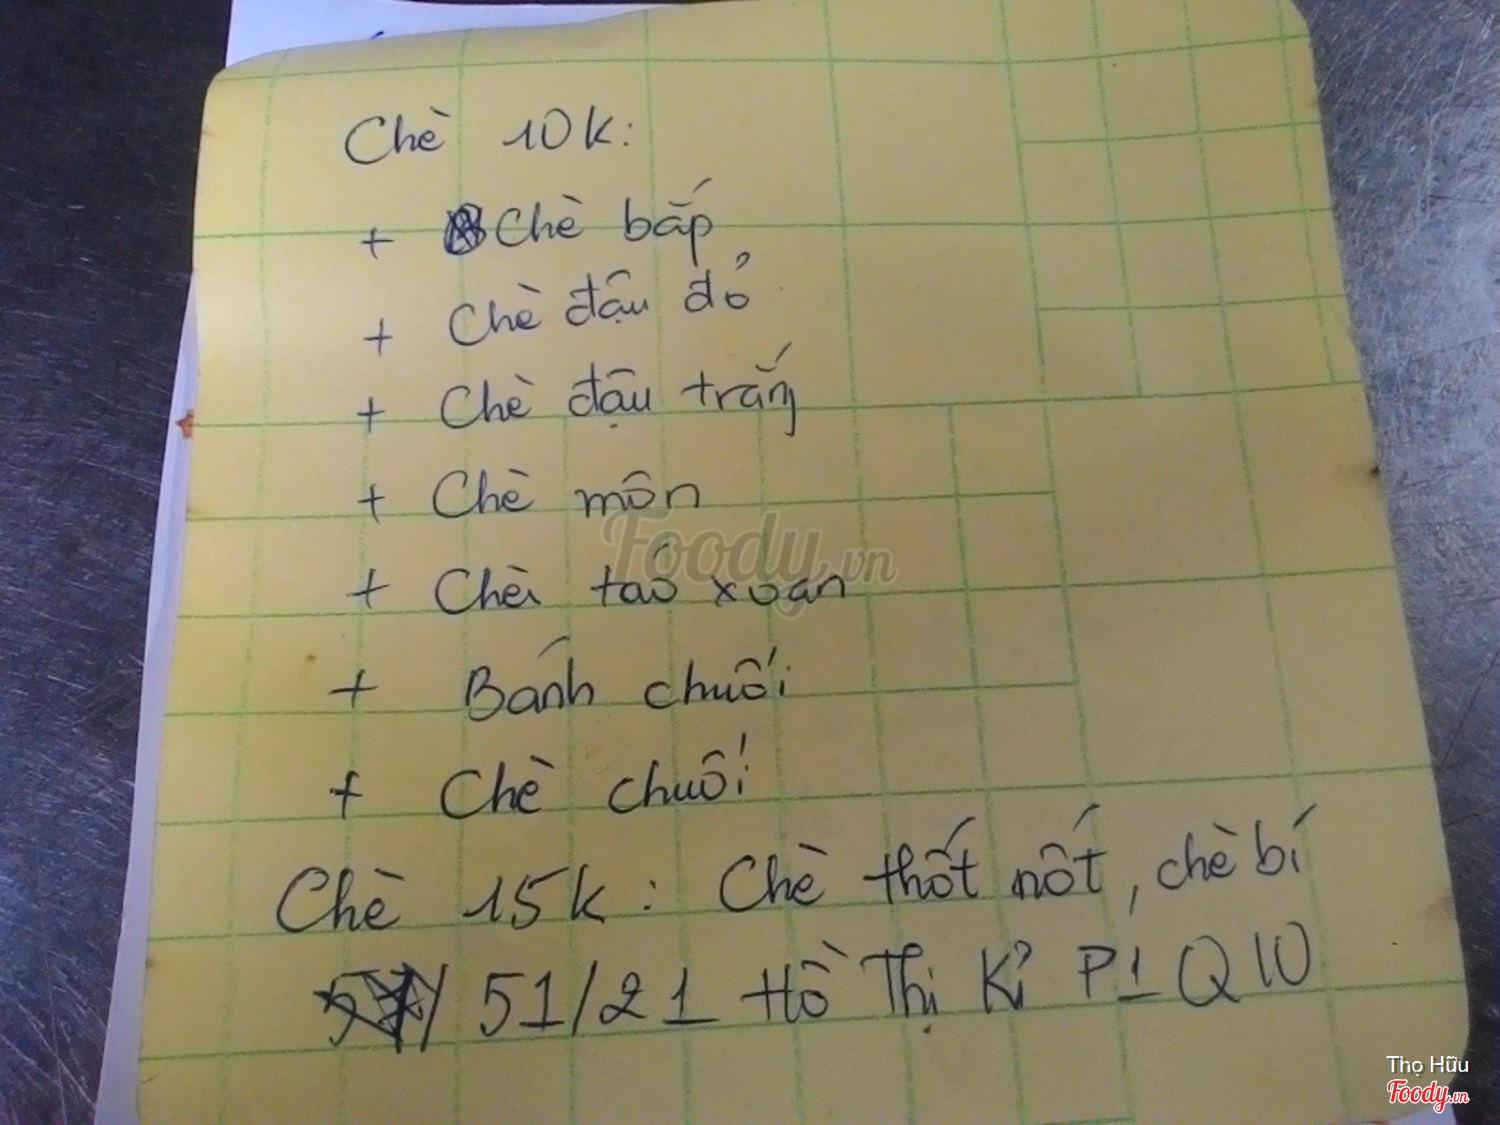 Chè 10k:
+ Chè bắp
+ Chè đậu đỏ
+ Chè đậu trắng
+ Chè môn
+ Chè táo xoan
+ Bánh chuối
+ Chè chuối
Chè 15k: Chè thốt nốt, chè bí
51/21 Hồ Thị Kỉ P1 Q10
Foody.vn
Thọ Hữu
Foody.vn